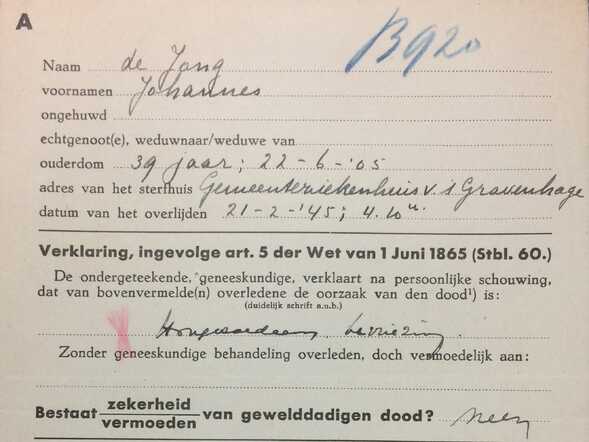 A
B920
Naam de Jong
voornamen Johannes
ongehuwd
echtgenoot(e), weduwnaar/weduwe van
ouderdom 39 jaar; 22-6-'05
adres van het sterfhuis Gemeenteziekenhuis v. 's Gravenhage
datum van het overlijden 21-2-'45; 4.10 u.
Verklaring, ingevolge art. 5 der Wet van 1 Juni 1865 (Stbl. 60.)
De ondergeteekende, geneeskundige, verklaart na persoonlijke schouwing,
dat van bovenvermelde(n) overledene de oorzaak van den dood¹) is:
(duidelijk schrift a.u.b.)
Hongeroedeem, bevriezing.
Zonder geneeskundige behandeling overleden, doch vermoedelijk aan:
Bestaat zekerheid van gewelddadigen dood? neen
vermoeden